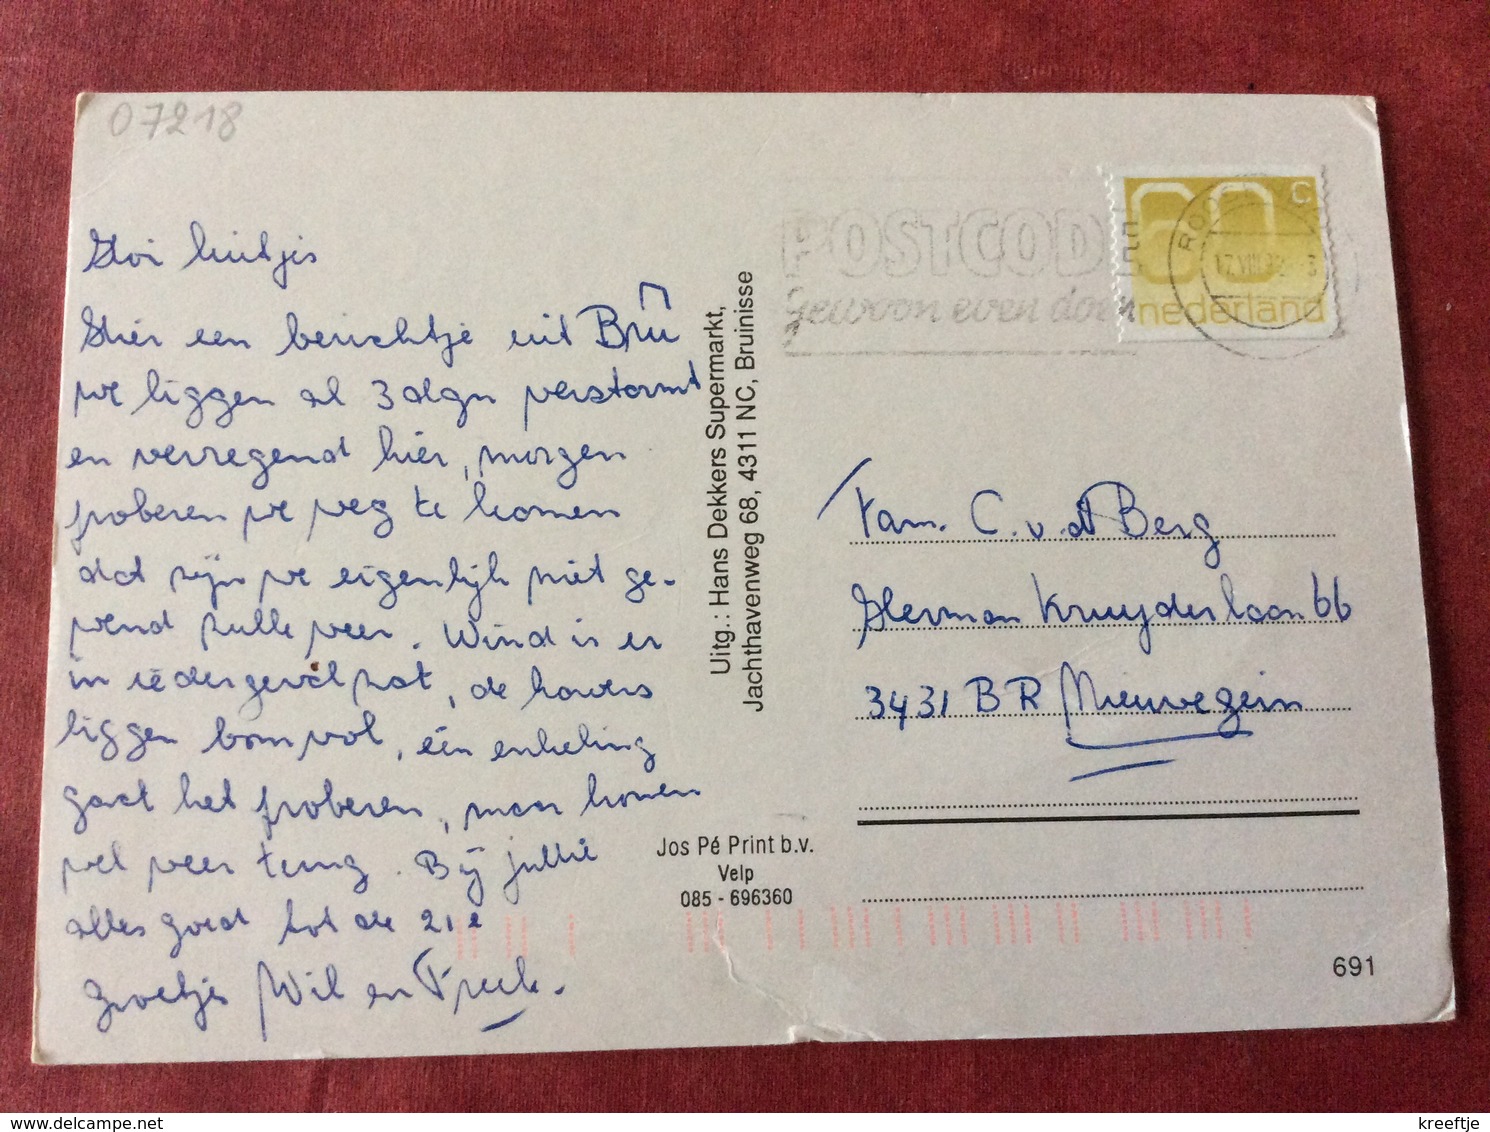 07218
Hoi luitjes
Hier een berichtje uit Brû
we liggen al 3 dgn verstormt
en verregend hier, morgen
proberen we weg te komen
dat zijn we eigenlijk niet ge-
wend zulk weer. Wind is er
in iedergeval zat, de havens
liggen bomvol, één enkeling
gaat het proberen, maar komen
wel weer terug. Bij jullie
alles goed tot de 21e
groetjes Wil en Freek.
Uitg.: Hans Dekkers Supermarkt,
Jachthavenweg 68, 4311 NC, Bruinisse
Jos Pé Print b.v.
Velp
085 - 696360
POSTCODE
gewoon even doen
60 C
nederland
17.VIII.92
Fam. C. v. d. Berg
Herman Kruyderlaan 66
3431 BR Nieuwegein
691
kreeftje